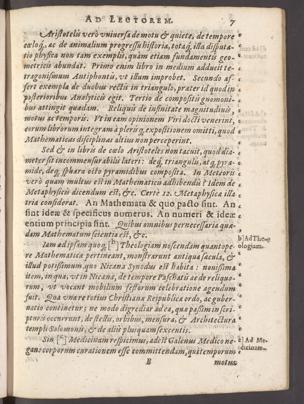 AD LECTOREM. 7
Aristotelis verò vniversa de motu & quiete, de tempore
cœloq́, ac de animalium progressu historia, totaq́, illa disputa-
tio physica non tam exemplis, quàm etiam fundamentis geo-
metricis abundat. Primo enim libro in medium adducit te-
tragonismum Antiphontis, vt illum improbet. Secundo af-
fert exempla de duobus rectis in triangulo, prater id quod in
posterioribus Analyticis egit. Tertio de compositis gnomoni-
bus attingit quædam. Reliquis de infinitate magnitudinis,
motus ac temporis. Vt in eam opinionem Viri docti venerint,
eorum librorum integram ac plenā expositionem omitti, quod
Mathematicas disciplinas altius non perceperint.
Sed & in libris de cœlo Aristoteles non tacuit, quod dia-
meter sit incommensurabilis lateri: deq́, triangulis, atq́, pyra-
mide, deq́, sphæra octo pyramidibus composita. In Meteoris
verò quàm multus est in Mathematicis adhibendis? Idem de
Metaphysicis dicendum est, &c. Certè 12. Metaphysica illa
tria considerat. An Mathemata & quo pacto sint. An
sint ideæ & specificus numerus. An numeri & ideæ
entium principia sint. Quibus omnibus pernecessaria quæ-
dam Mathematum scientia est, &c.
Iam ad ipsam quoq́, [b] Theologiam noscendam quantope-
re Mathematica pertineant, monstrarunt antiqua sæcula, &
illud potissimum quo Nicæna Synodus est habita: nouissimā
item, in qua, vt in Nicæna, de tempore Paschatis ac de reliquo-
rum, vt vocant mobilium festorum celebratione agendum
fuit. Qua vna re totius Christianæ Reipublicæ ordo, ac guber-
natio continetur; ne modo digrediar ad ea, quæ passim in scri-
pturis occurrunt, de stellis, orbibus, mensura, & Architectura
templi Solomonis, & de aliis pluquam sexcentis.
Sin [c] Medicinam respicimus, ades̃t Galenus Medico ne-
gans corporum curationem esse committendam, qui temporum
B
motus
b Ad Theo-
ologiam.
c Ad Me-
dicinam.